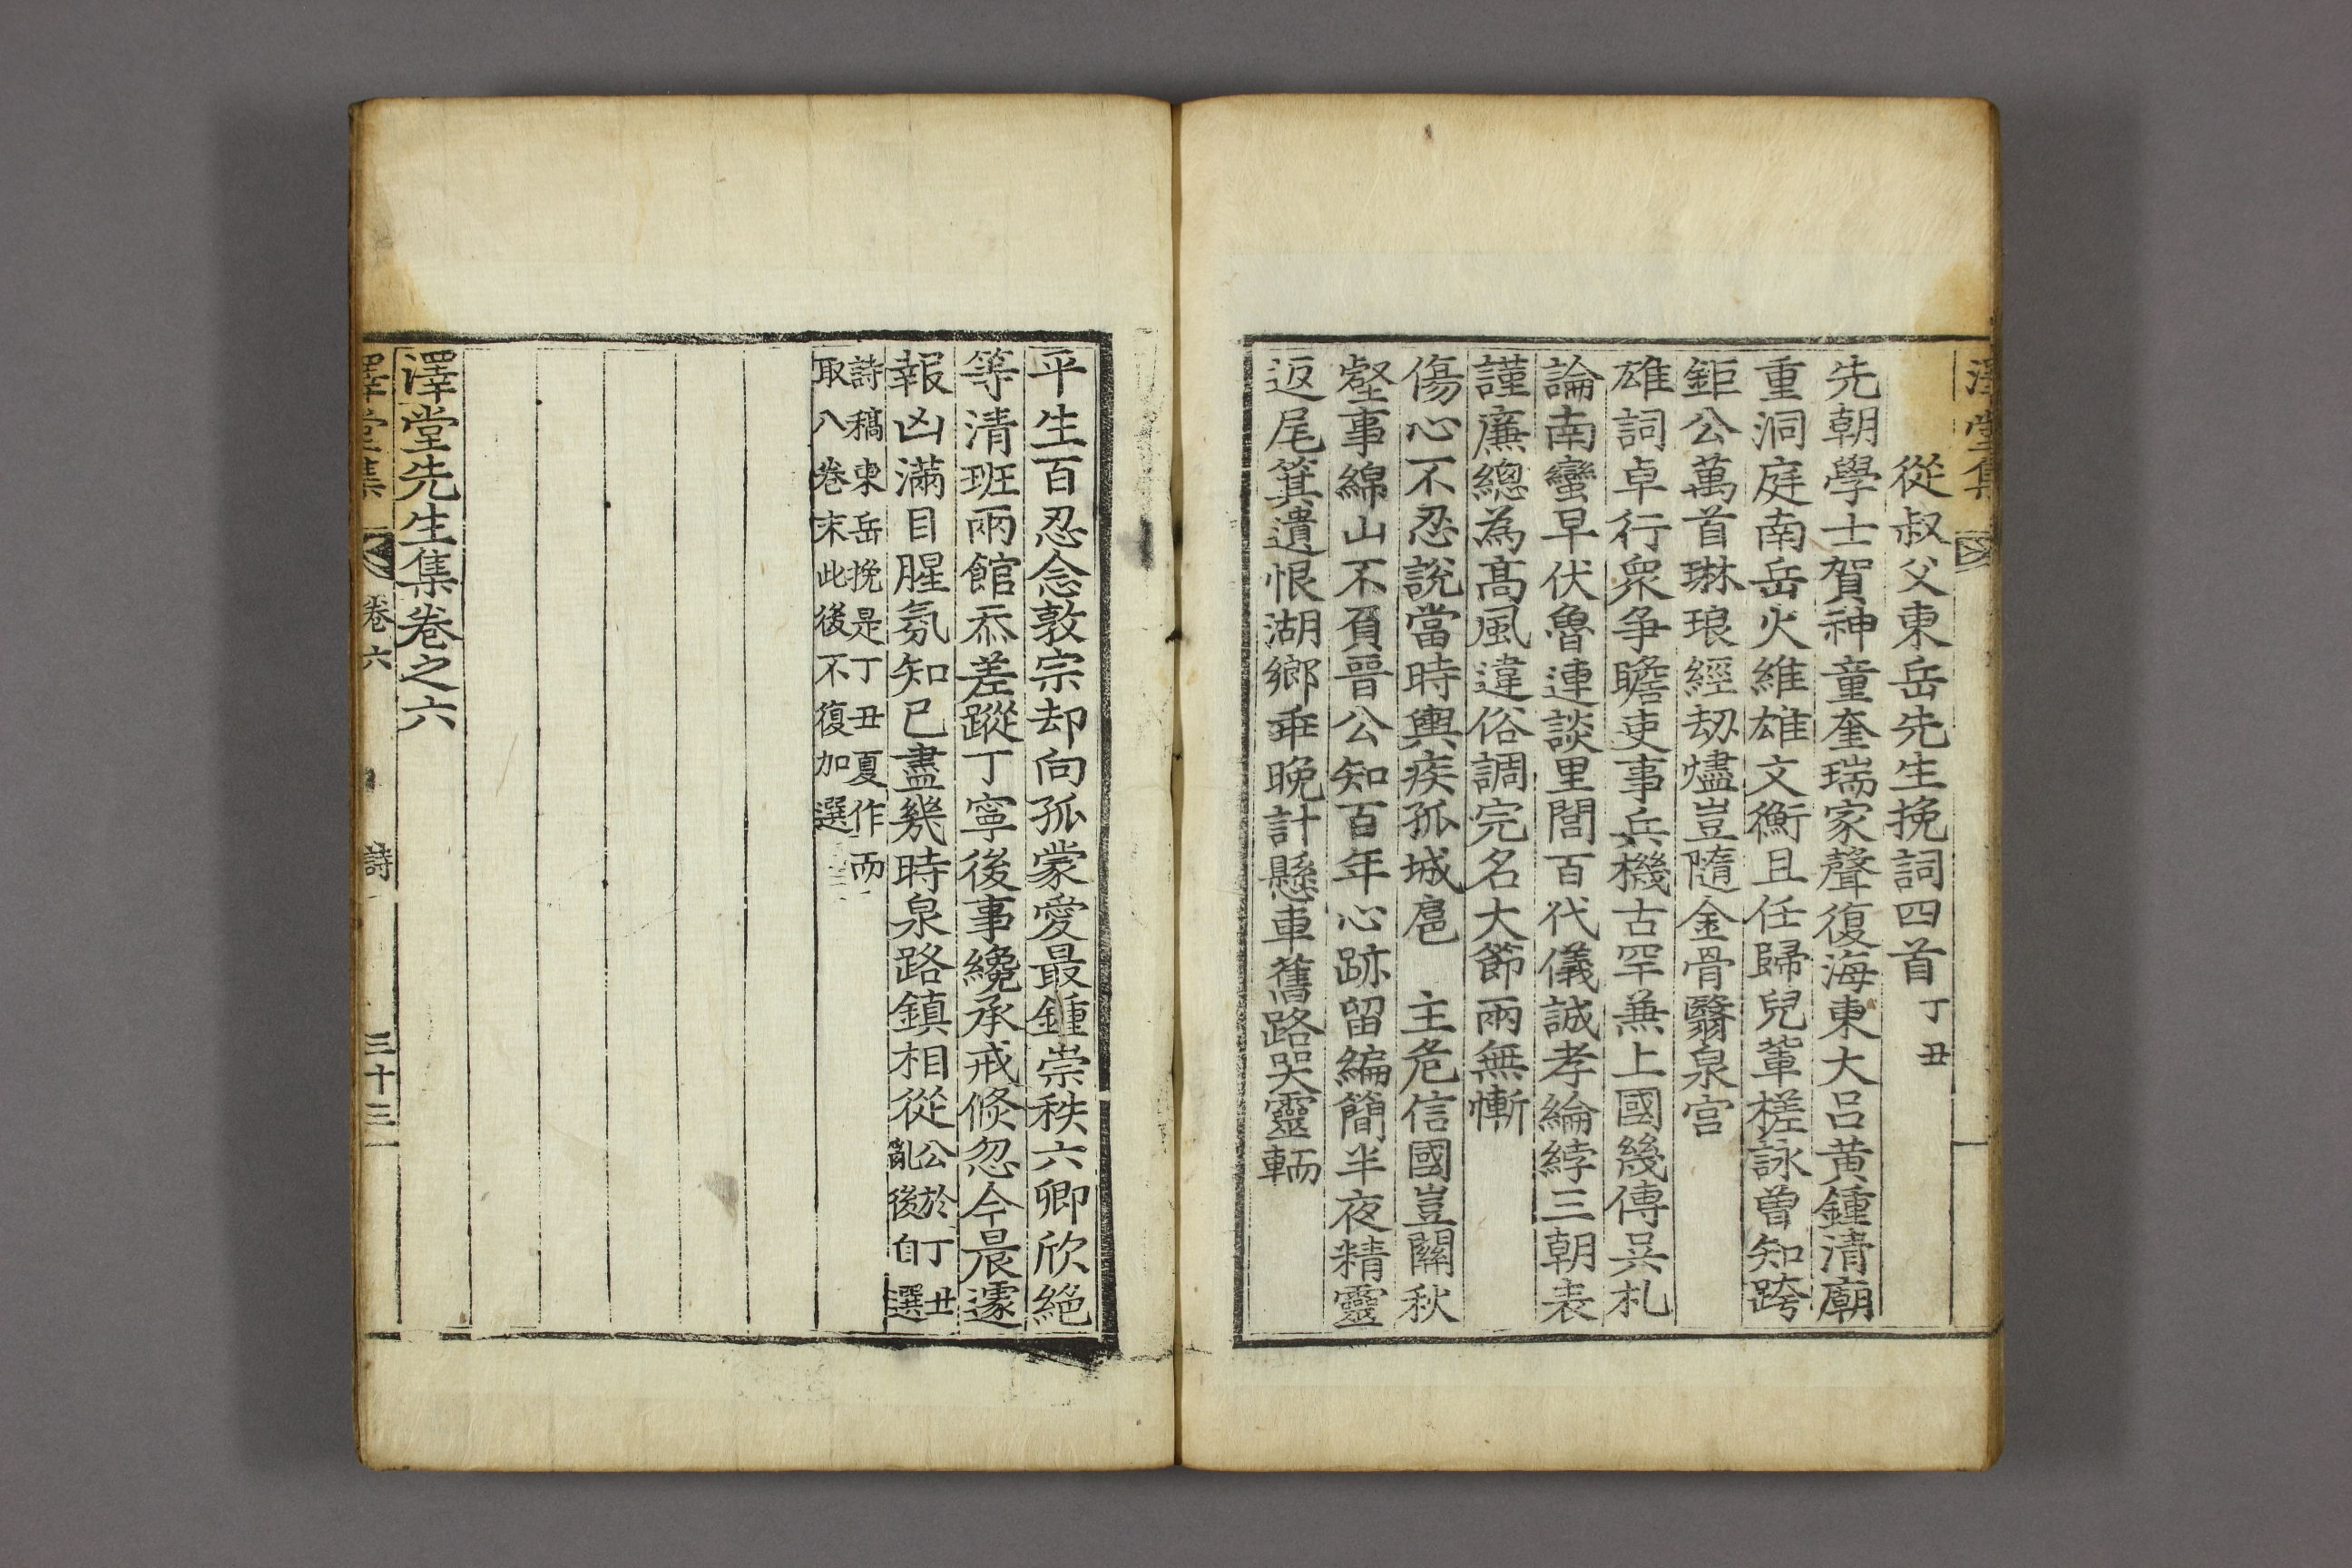 澤堂集
從叔父東岳先生挽詞四首 丁丑
先朝學士賀神童奎瑞家聲復海東大呂黃鍾清廟
重洞庭南岳火維雄文衡且任歸兒輩槎詠曾知跨
鉅公萬首琳琅經刼燼豈隨金骨翳泉宮
雄詞卓行衆争瞻吏事兵機古罕兼上國幾傳吳札
論南蠻早伏魯連談里閭百代儀誠孝綸綍三朝表
謹廉總為髙風違俗調完名大節兩無慚
傷心不忍說當時輿疾孤城扈　主危信國豈關秋
壑事綿山不負晉公知百年心跡留編簡半夜精靈
返尾箕遺恨湖鄉乖晚計懸車舊路哭靈輀
平生百忍念敦宗却向孤蒙愛最鍾崇秩六卿欣絕
等清班兩館忝差蹤丁寧後事纔承戒倐忽今晨遽
報凶滿目腥氛知已盡幾時泉路鎮相從
公於丁丑
亂後自選
詩稿東岳挽是丁丑夏作而
取八卷末此後不復加選
澤堂先生集卷之六
澤堂集 卷六 詩 三十三